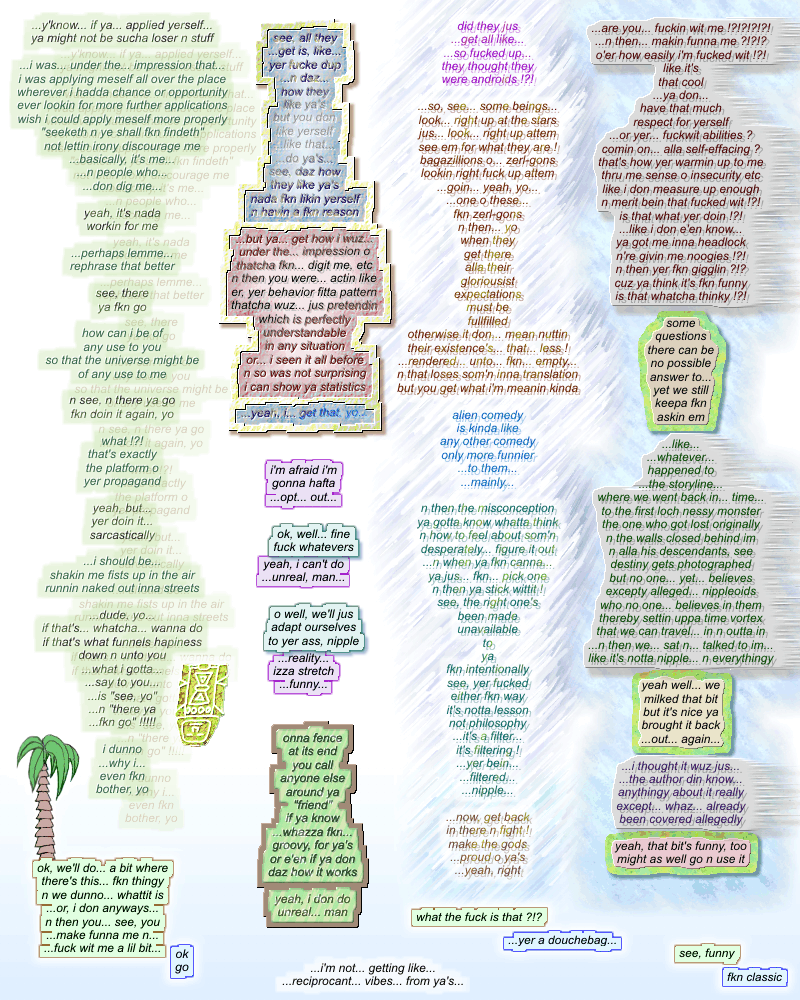 ...y'know... if ya... applied yerself...
ya might not be sucha loser n stuff
...i was... under the... impression that...
i was applying meself all over the place
wherever i hadda chance or opportunity
ever lookin for more further applications
wish i could apply meself more properly
"seeketh n ye shall fkn findeth"
not lettin irony discourage me
...basically, it's me...
...n people who...
...don dig me...
yeah, it's nada
workin for me
...perhaps lemme...
rephrase that better
see, there
ya fkn go
how can i be of
any use to you
so that the universe might be
of any use to me
n see, n there ya go
fkn doin it again, yo
what !?!
that's exactly
the platform o
yer propagand
yeah, but...
yer doin it...
sarcastically
...i should be...
shakin me fists up in the air
runnin naked out inna streets
...dude, yo...
if that's... whatcha... wanna do
if that's what funnels hapiness
down n unto you
...what i gotta...
...say to you...
...is "see, yo"
...n "there ya
...fkn go" !!!!!
i dunno
...why i...
even fkn
bother, yo
ok, we'll do... a bit where
there's this... fkn thingy
n we dunno... whattit is
...or, i don anyways...
n then you... see, you
...make funna me n...
...fuck wit me a lil bit...
ok
go
see, all they
...get is, like...
yer fucke dup
...n daz...
how they
like ya's
but you don
like yerself
...like that...
...do ya's...
see, daz how
they like ya's
nada fkn likin yerself
n havin a fkn reason
...but ya... get how i wuz...
under the... impression o
thatcha fkn... digit me, etc
n then you were... actin like
er, yer behavior fitta pattern
thatcha wuz... jus pretendin
which is perfectly
understandable
in any situation
or... i seen it all before
n so was not surprising
i can show ya statistics
...yeah, i... get that, yo...
i'm afraid i'm
gonna hafta
...opt... out...
ok, well... fine
fuck whatevers
yeah, i can't do
...unreal, man...
o well, we'll jus
adapt ourselves
to yer ass, nipple
...reality...
izza stretch
...funny...
onna fence
at its end
you call
anyone else
around ya
"friend"
if ya know
...whazza fkn...
groovy, for ya's
or e'en if ya don
daz how it works
yeah, i don do
unreal... man
...i'm not... getting like...
...reciprocant... vibes... from ya's...
did they jus
...get all like...
...so fucked up...
they thought they
were androids !?!
...so, see... some beings...
look... right up at the stars
jus... look... right up attem
see em for what they are !
bagazillions o... zerl-gons
lookin right fuck up attem
...goin... yeah, yo...
...one o these...
fkn zerl-gons
n then... yo
when they
get there
alla their
gloriousist
expectations
must be
fullfilled
otherwise it don... mean nuttin
their existence's... that... less !
...rendered... unto... fkn... empty...
n that loses som'n inna translation
but you get what i'm meanin kinda
alien comedy
is kinda like
any other comedy
only more funnier
...to them...
...mainly...
n then the misconception
ya gotta know whatta think
n how to feel about som'n
desperately... figure it out
...n when ya fkn canna...
ya jus... fkn... pick one
n then ya stick wittit !
see, the right one's
been made
unavailable
to
ya
fkn intentionally
see, yer fucked
either fkn way
it's notta lesson
not philosophy
...it's a filter...
it's filtering !
...yer bein...
...filtered...
...nipple...
...now, get back
in there n fight !
make the gods
...proud o ya's
...yeah, right
what the fuck is that ?!?
...yer a douchebag...
...are you... fuckin wit me !?!?!?!?!
...n then... makin funna me ?!?!?
o'er how easily i'm fucked wit !?!
like it's
that cool
...ya don...
have that much
respect for yerself
...or yer... fuckwit abilities ?
comin on... alla self-effacing ?
that's how yer warmin up to me
thru me sense o insecurity etc
like i don measure up enough
n merit bein that fucked wit !?!
is that what yer doin !?!
...like i don e'en know...
ya got me inna headlock
n're givin me noogies !?!
n then yer fkn gigglin ?!?
cuz ya think it's fkn funny
is that whatcha thinky !?!
some
questions
there can be
no possible
answer to...
yet we still
keepa fkn
askin em
...like...
...whatever...
happened to
the storyline...
where we went back in... time...
to the first loch nessy monster
the one who got lost originally
n the walls closed behind im
n alla his descendants, see
destiny gets photographed
but no one... yet... believes
excepty alleged... nippleoids
who no one... believes in them
thereby settin uppa time vortex
that we can travel... in n outta in
...n then we... sat n... talked to im...
like it's notta nipple... n everythingy
yeah well... we
milked that bit
but it's nice ya
brought it back
...out... again...
...i thought it wuz jus...
...the author din know...
anythingy about it really
except... whaz... already
been covered allegedly
yeah, that bit's funny, too
might as well go n use it
see, funny
fkn classic